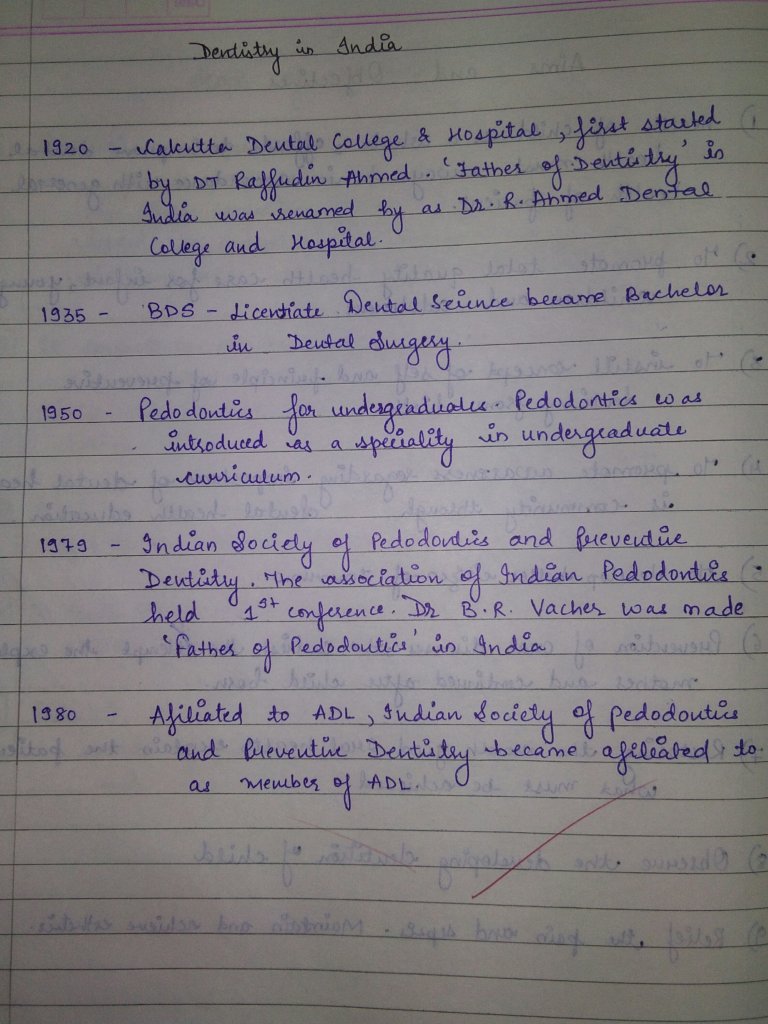 Dentistry in India
1920 - Calcutta Dental College & Hospital, first started
by DT Raffudin Ahmed. 'Father of Dentistry' in
India was renamed by as Dr. R. Ahmed Dental
College and Hospital.
1935 - BDS - Licentiate Dental Science became Bachelor
in Dental Surgery.
1950 - Pedodontics for undergraduates. Pedodontics was
introduced as a speciality in undergraduate
curriculum.
1979 - Indian Society of Pedodontics and Preventive
Dentistry. The association of Indian Pedodontics
held 1st conference. Dr B.R. Vacher was made
'Father of Pedodontics' in India
1980 - Afiliated to ADL, Indian Society of pedodontics
and Preventive Dentistry became afiliated to
as member of ADL.